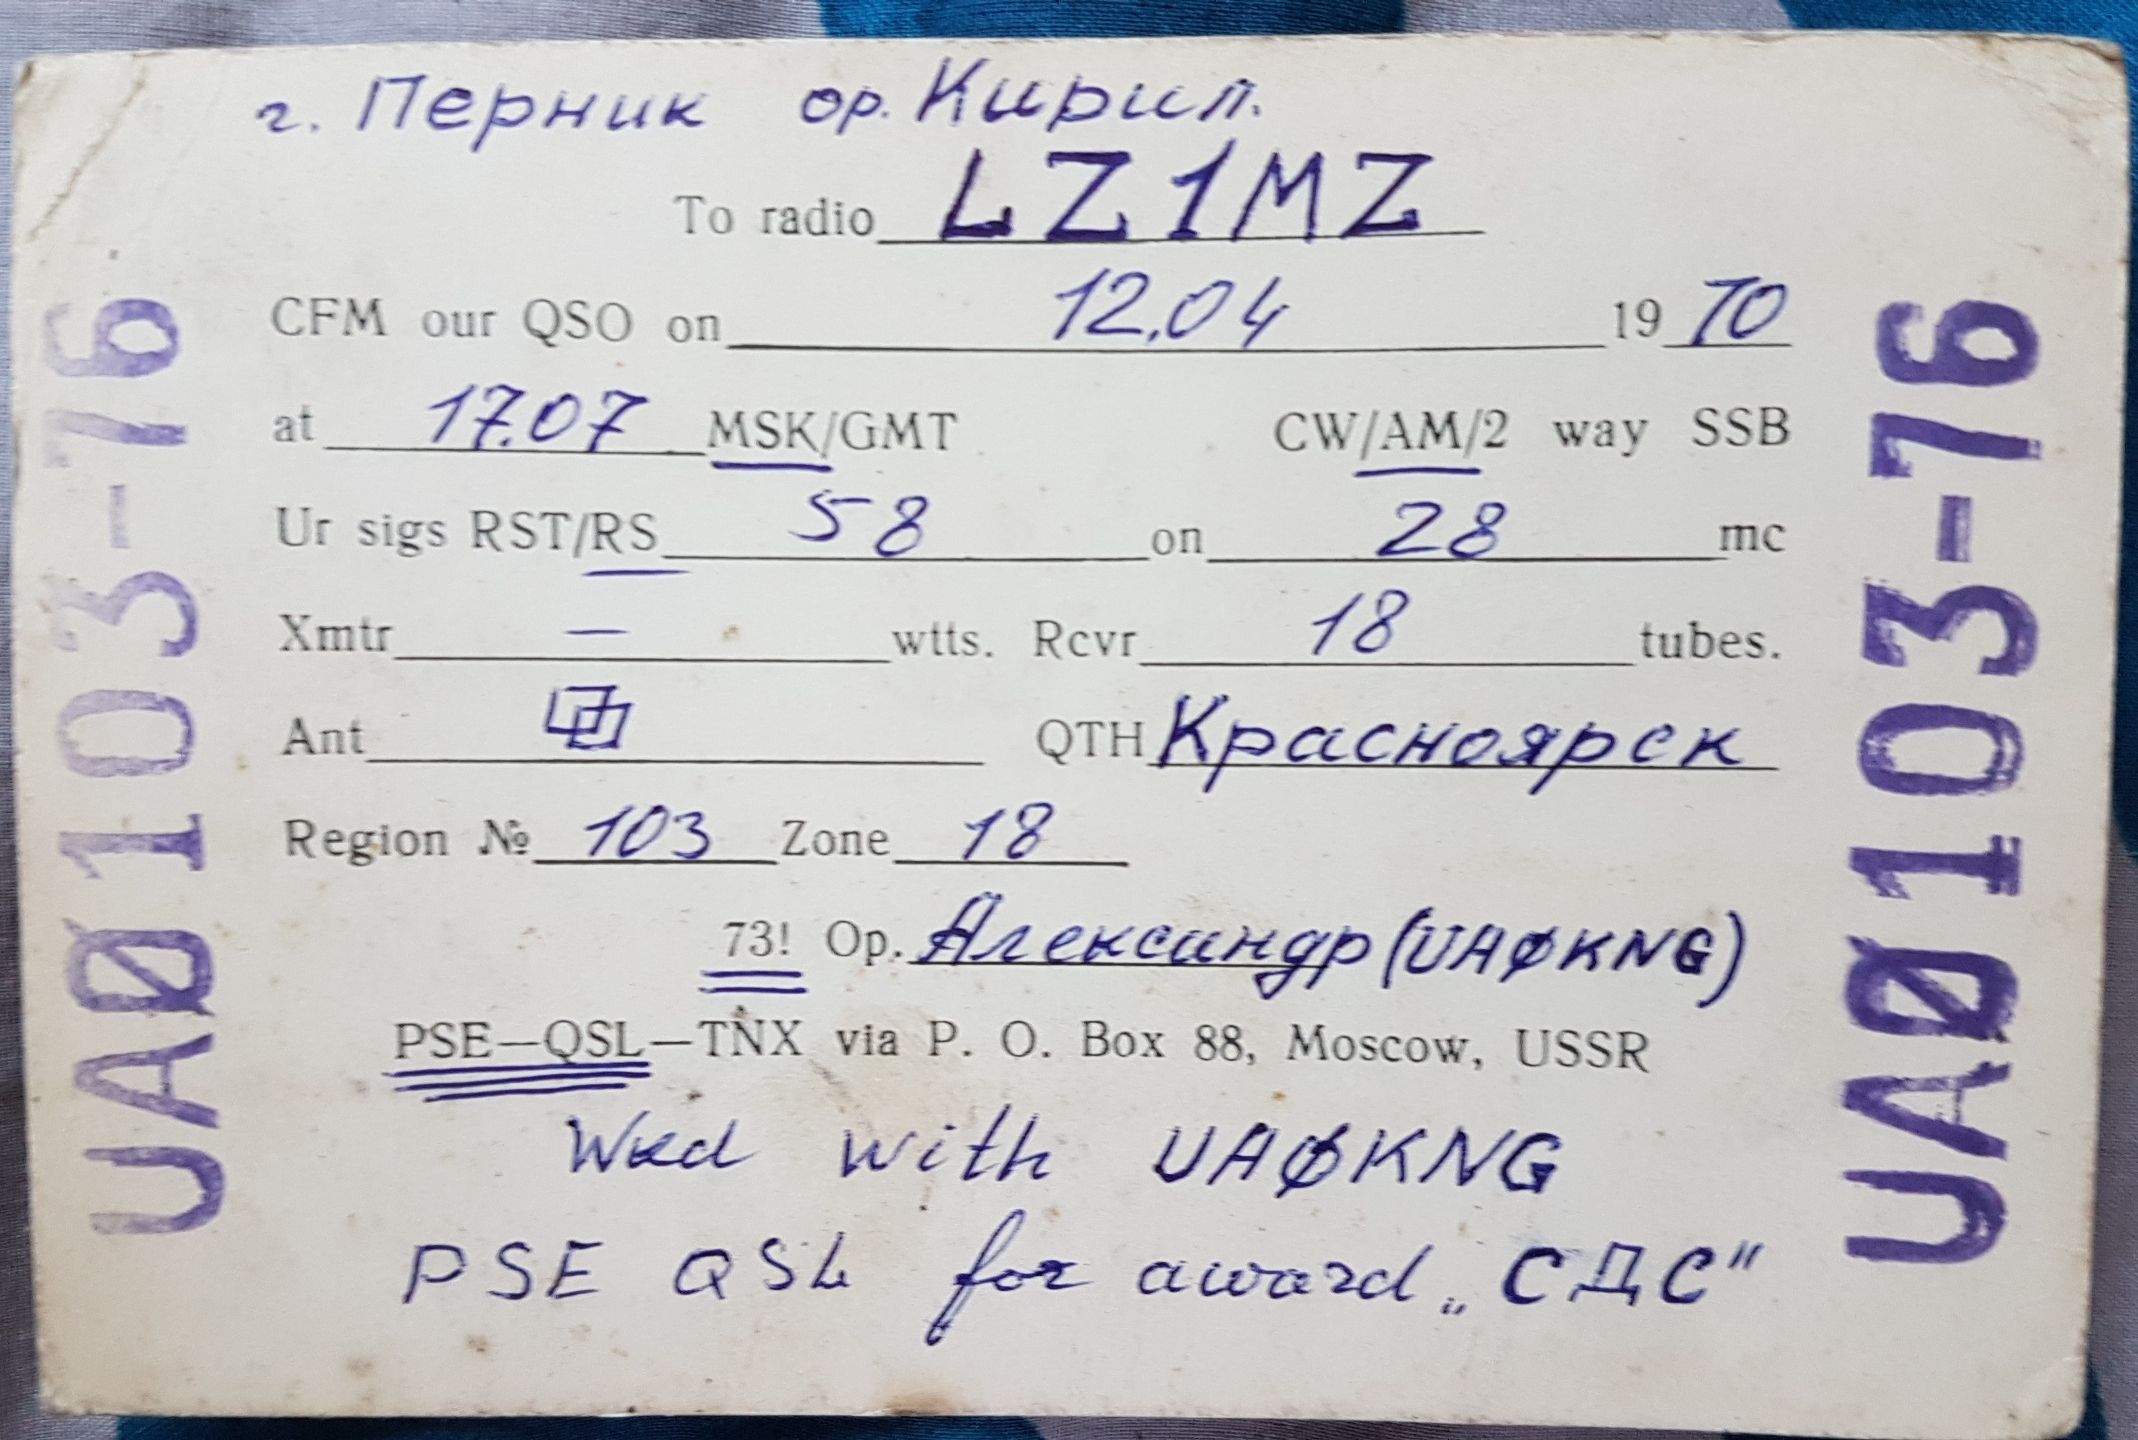 г. Перник ор. Кирил.
To radio LZ1MZ
CFM our QSO on 12.04 1970
at 17.07 MSK/GMT CW/AM/2 way SSB
Ur sigs RST/RS 58 on 28 mc
Xmtr — wtts. Rcvr 18 tubes.
Ant QTH Красноярск
Region № 103 Zone 18
73! Op. Александр (UAØKNG)
PSE—QSL—TNX via P. O. Box 88, Moscow, USSR
Wkd with UAØKNG
PSE QSL for award „СДС"
UAØ103-76
UAØ103-76